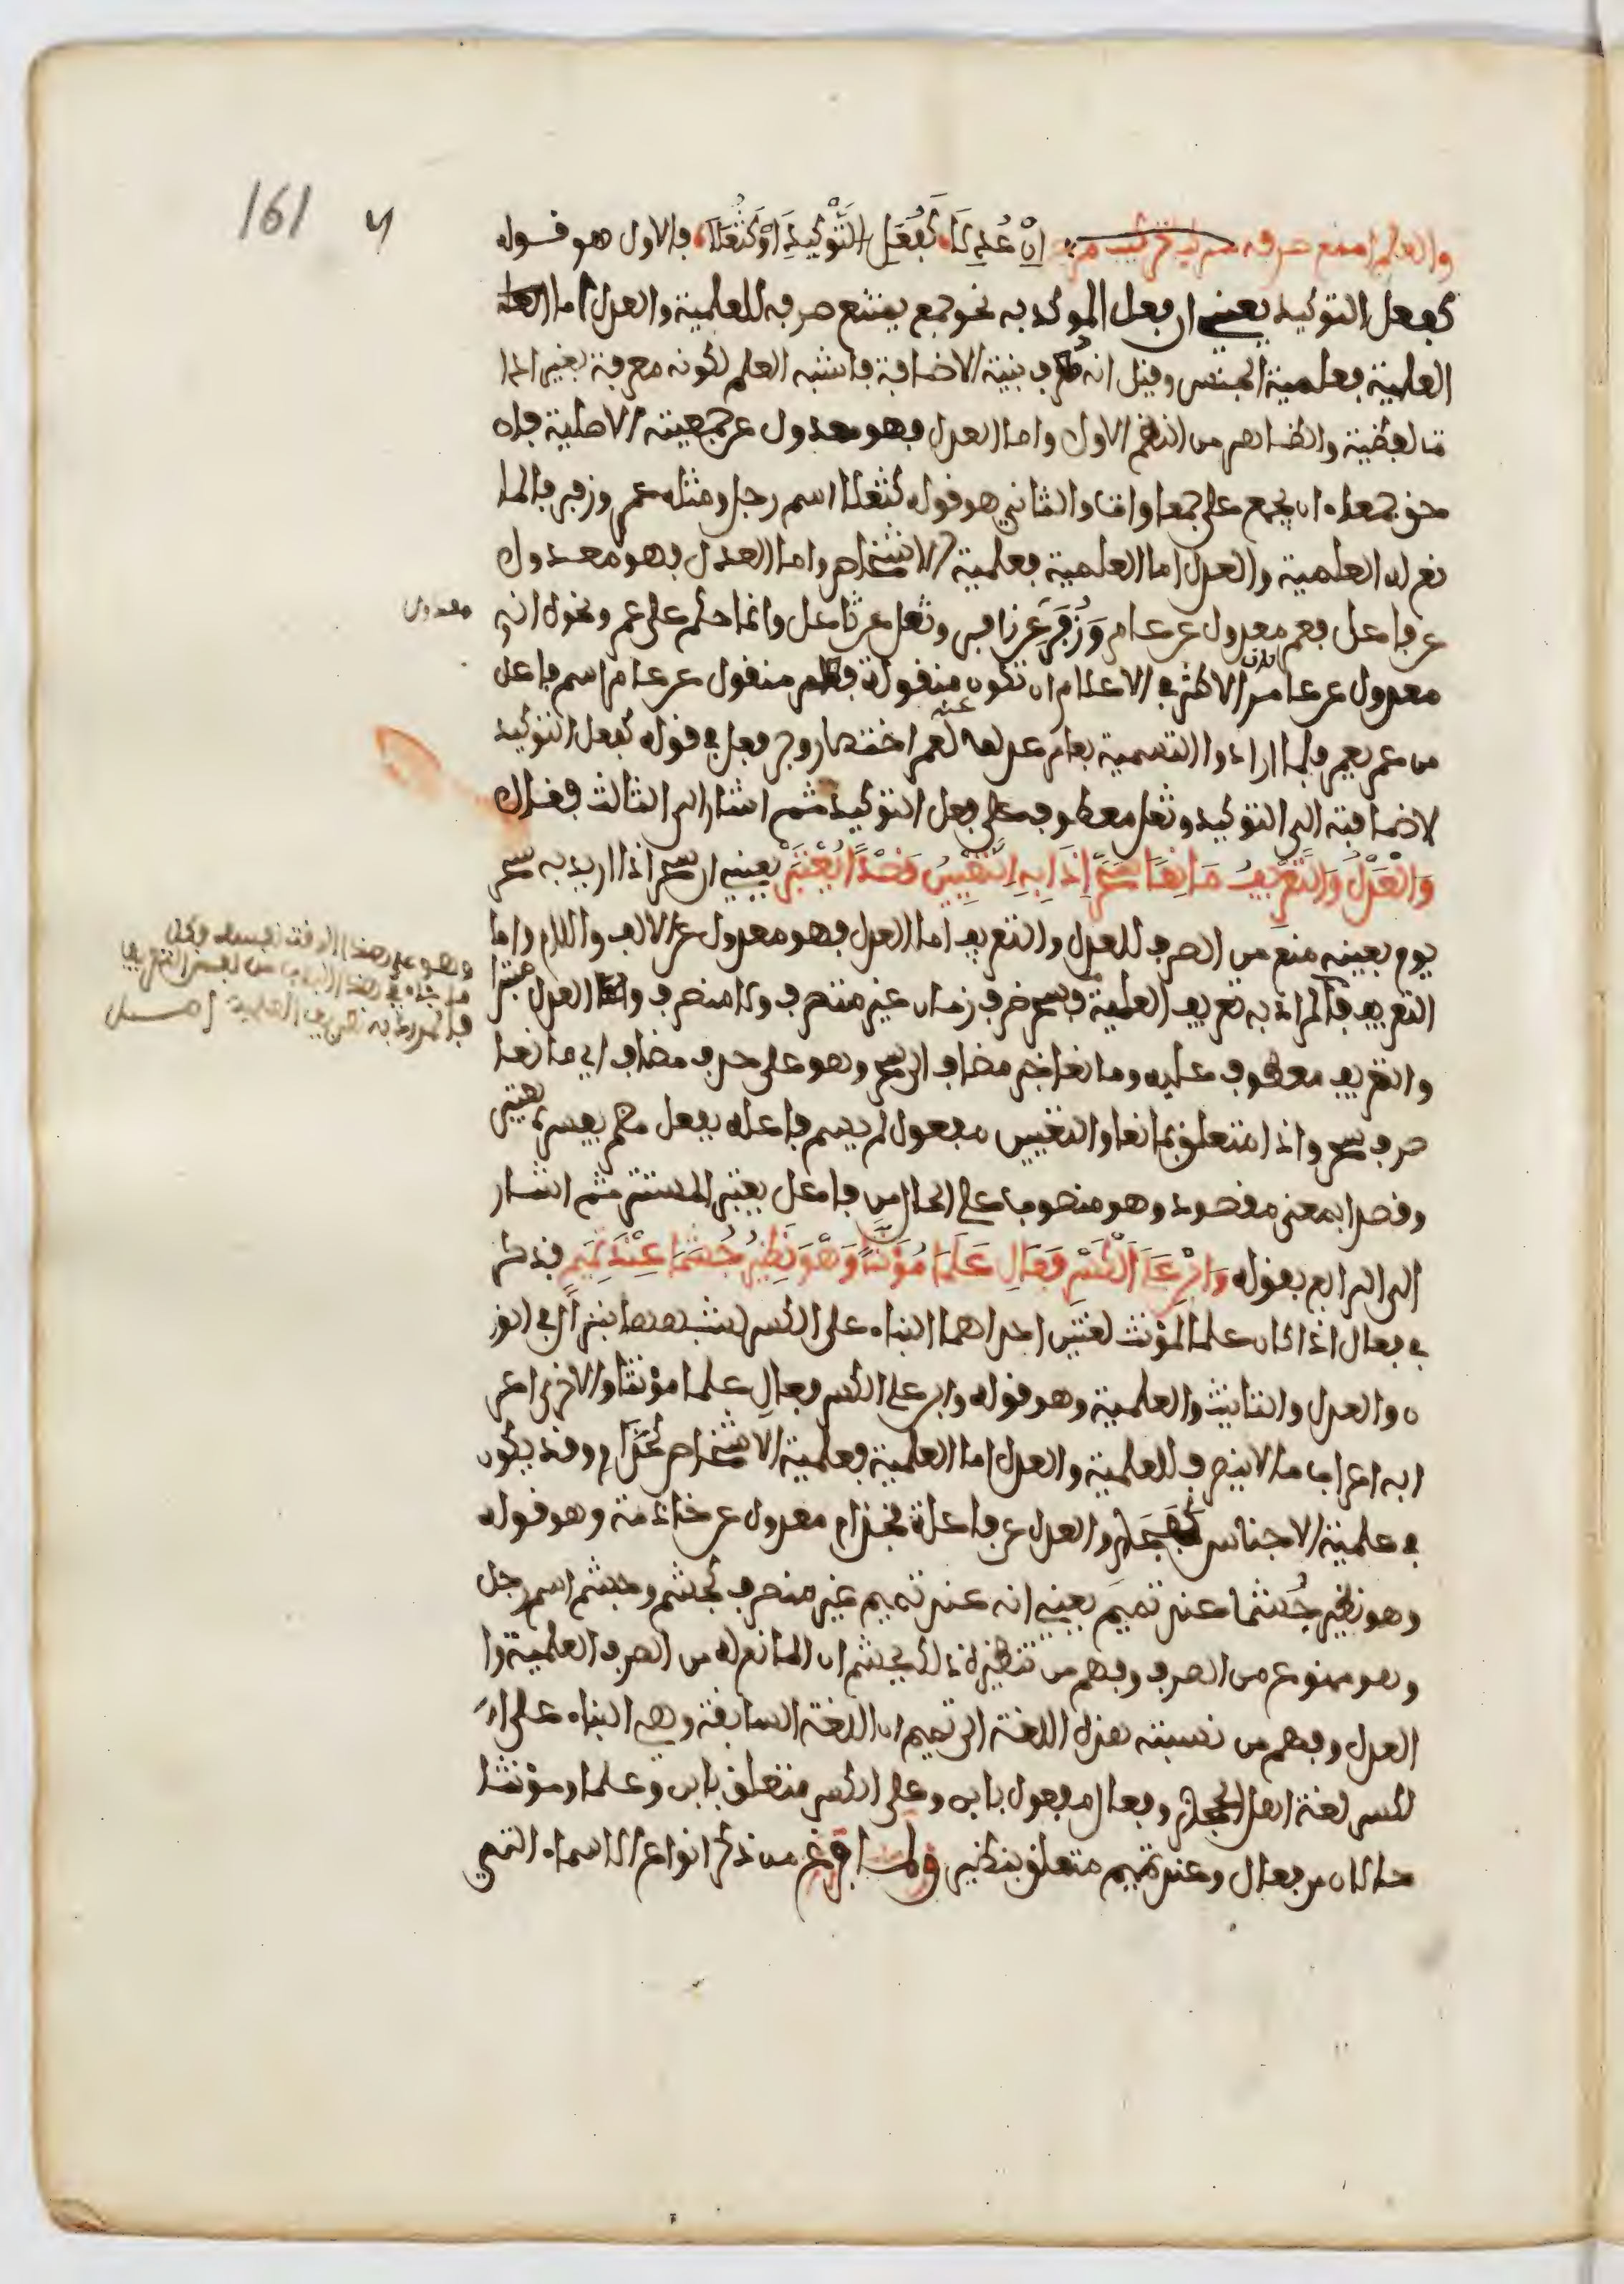 161
والعلم امنع صرفه إِنْ عُدِلَا كَفُعَلِ التَّوْكِيدِ أَوْ كَثُعَلَا فالاول هو قوله
كفعل التوكيد يعني ان فعل الموكد به نحو جمع يمتنع صرفه للعلمية والعدل اما
العلمية فعلمية الجنس وقيل انه بنية الاضافة فاشبه العلم لكونه معرفة بغير اداة
لفظية وهو الظاهر من النظم الاول واما العدل فهو معدول عن جمعيته الاصلية فان
حق جمعاء ان يجمع على جمعاوات والثاني هو قوله كثعلا اسم رجل ومثله عمر وزفر فالما
نع له العلمية والعدل اما العلمية فعلمية الاشخاص واما العدل فهو معدول
عن فاعل فعمر معدول عن عامر وَزُفَر عن زافر وثعل عن ثاعل وانما حكم على عمر ونحوه انه
معدول
معدول عن عامر لان الاكثر في الاعلام ان تكون منقولة فعامر منقول عن عامر اسم فاعل
من عمر يعمر فلما ارادوا التسمية بعامر عدلوا عنه لعمر اختصارا وجر فعل في قوله كفعل التوكيد
لاضافته الى التوكيد وثعل معطوف على فعل التوكيد ثم اشار الى الثالث فقال
وَالْعَدْلُ وَالتَّعْرِيفُ مَانِعَا سَحَرْ إِذَا بِهِ التَّعْيِينُ قَصْدًا يُعْتَبَرْ يعني ان سحر اذا اريد به سحر
يوم بعينه منع من الصرف للعدل والتعريف اما العدل فهو معدول عن الالف واللام واما
التعريف فالمراد به تعريف العلمية فسحر ظرف زمان غير متصرف ولا منصرف والعدل مبتدا
وهو على هذا الوقف
ما جاء في هذا الباب من لفظ التعريف
فالمراد به تعريف العلمية
والتعريف معطوف عليه ومانعا خبر مضاف الى سحر وهو على حذف مضاف اي مانعا
صرف سحر واذا متعلق بمانعا والتعيين مفعول لم يسم فاعله بفعل مضمر يفسره يعتبر
وقصدا بمعنى مقصود وهو منصوب على الحال من فاعل يعتبر المستتر ثم اشار
الى الرابع بقوله وَابْنِ عَلَى الْكَسْرِ فَعَالِ عَلَمَا مُؤَنَّثًا وَهْوَ نَظِيرُ جُشَمَا عِنْدَ تَمِيمٍ فذكر
في فعال اذا كان علما لمؤنث لغتين احداهما البناء على الكسر لشبهها بنزال في الوز
ن والعدل والتانيث والعلمية وهو قوله وابن على الكسر فعال علما مؤنثا والاخرى اعر
ابه اعراب ما لا ينصرف للعلمية والعدل اما العلمية فعلمية الاشخاص كحذام وقد يكون
في علمية الاجناس كفجار والعدل عن فاعلة فحذام معدول عن حاذمة وهو قوله
وهو نظير جُشَما عند تميم يعني انه عند تميم غير منصرف كجشم وجشم اسم رجل
وهو ممنوع من الصرف وفهم من تنظيره ذلك بجشم ان المانع له من الصرف العلمية وا
لعدل وفهم من نسبته هذه اللغة الى تميم ان اللغة السابقة وهي البناء على ا
لكسر لغة اهل الحجاز وفعال مفعول بابن وعلى الكسر متعلق بابن وعلما ومؤنثا
حالان من فعال وعند تميم متعلق بنظير ولما فرغ من ذكر انواع الاسماء التي